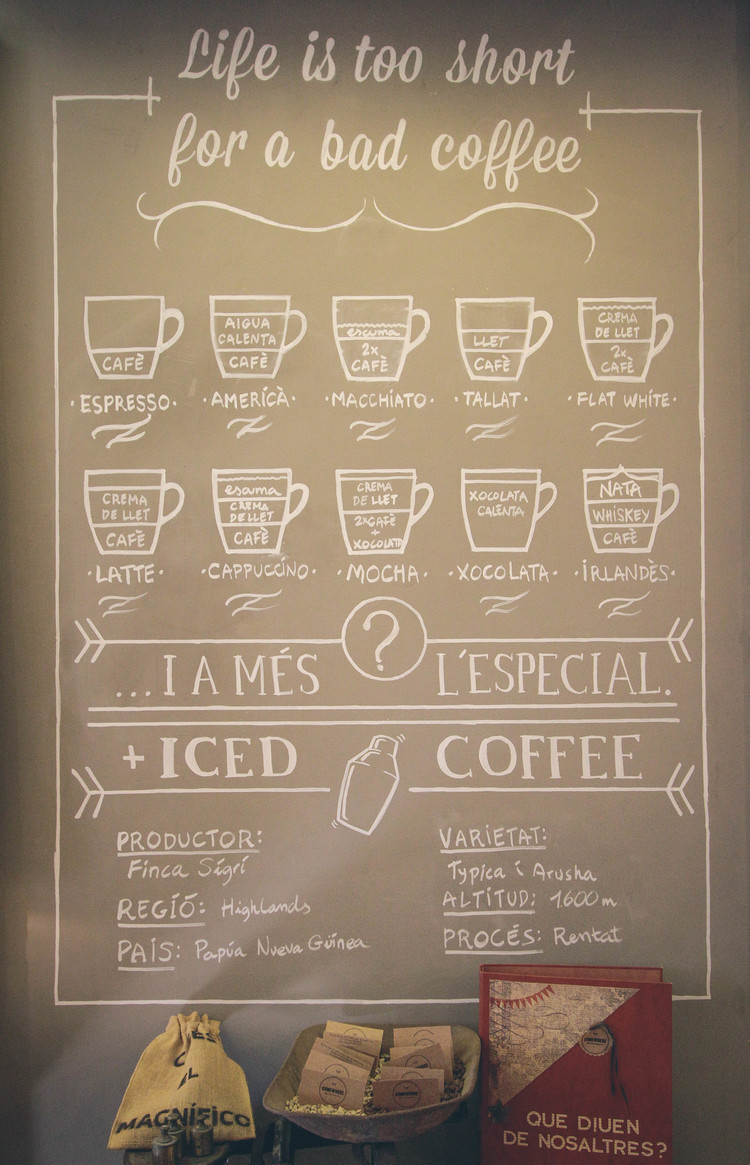 Life is too short
for a bad coffee
CAFÈ
·ESPRESSO·
AIGUA
CALENTA
CAFÈ
·AMERICÀ·
escuma
2x
CAFÈ
·MACCHIATO·
LLET
CAFÈ
·TALLAT·
CREMA
DE LLET
2x
CAFÈ
·FLAT WHITE·
CREMA
DE LLET
CAFÈ
·LATTE·
escuma
CREMA
DE LLET
CAFÈ
·CAPPUCCINO·
CREMA
DE LLET
2xCAFÈ
+
XOCOLATA
·MOCHA·
XOCOLATA
CALENTA
·XOCOLATA·
NATA
WHISKEY
CAFÈ
·IRLANDÈS·
?
...I A MÉS L'ESPECIAL.
+ ICED COFFEE
PRODUCTOR:
Finca Sigri
REGIÓ: Highlands
PAÍS: Papúa Nueva Guinea
VARIETAT:
Typica i Arusha
ALTITUD: 1600m
PROCÉS: Rentat
CAFÈS
EL
MAGNÍFICO
QUE DIUEN
DE NOSALTRES?